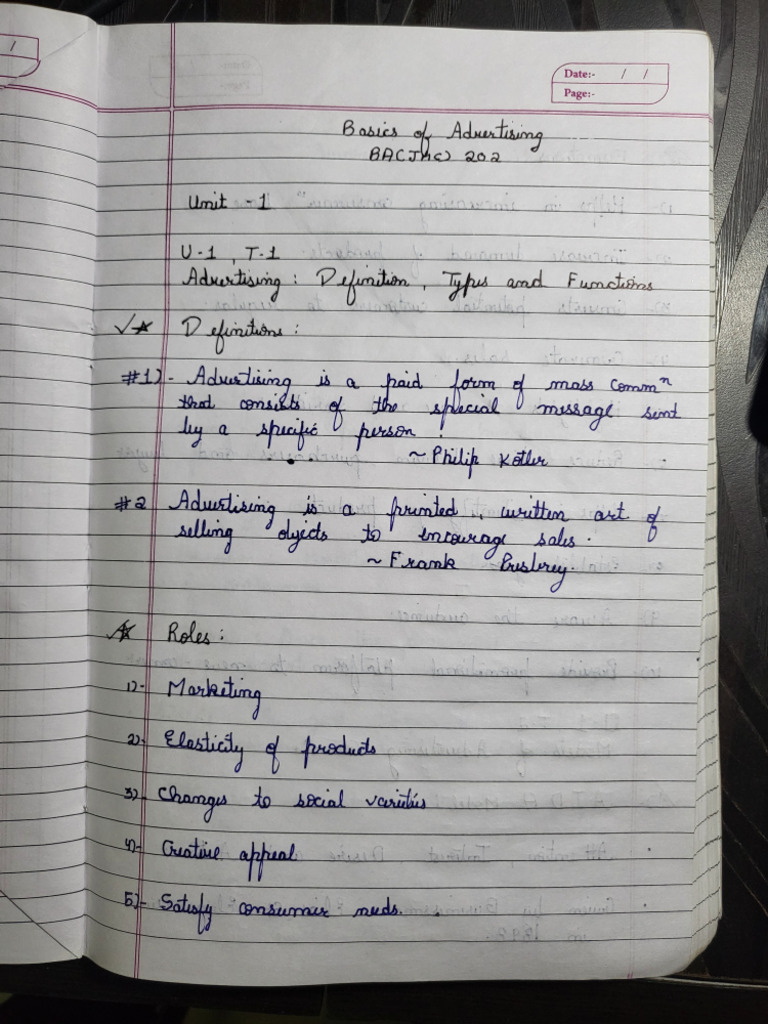 /
Date:- / /
Page:-
Basics of Advertising
BA(JMC) 202
Unit - 1
U-1 , T-1
Advertising : Definition , Types and Functions
Definitions :
#1)- Advertising is a paid form of mass commⁿ
that consists of the special message sent
by a specific person .
~ Philip Kotler
#2 Advertising is a printed , written art of
selling objects to encourage sales .
~ Frank
Roles :
1)- Marketing
2)- Elasticity of products
3)- Changes to social varieties
4)- Creative appeal
5)- Satisfy consumer needs .